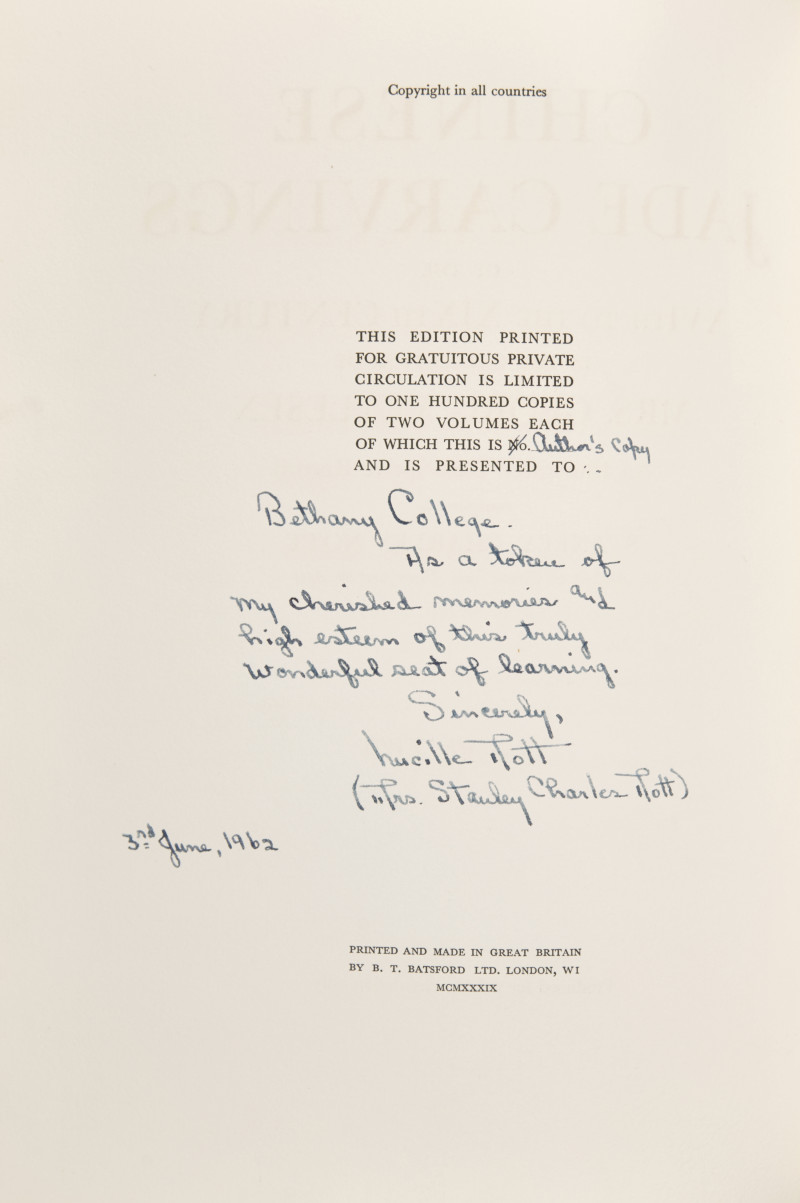 Copyright in all countries
THIS EDITION PRINTED
FOR GRATUITOUS PRIVATE
CIRCULATION IS LIMITED
TO ONE HUNDRED COPIES
OF TWO VOLUMES EACH
OF WHICH THIS IS No. Author's Copy
AND IS PRESENTED TO . .
Bethany College.
As a token of
my cherished memories and
high esteem of this truly
wonderful seat of learning.
Sincerely,
Lucille Nott
(Mrs. Stanley Charles Nott)
3rd June, 1962
PRINTED AND MADE IN GREAT BRITAIN
BY B. T. BATSFORD LTD. LONDON, WI
MCMXXXIX